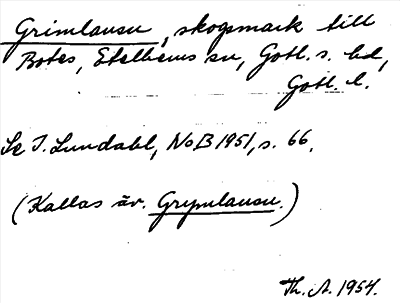 Grimlausu, skogsmark till
Botes, Etelhems sn, Gotl. s. hd,
Gotl. l.
Se I. Lundahl, NoB 1951, s. 66.
(Kallas äv. Grymlausu.)
Th. A. 1954.